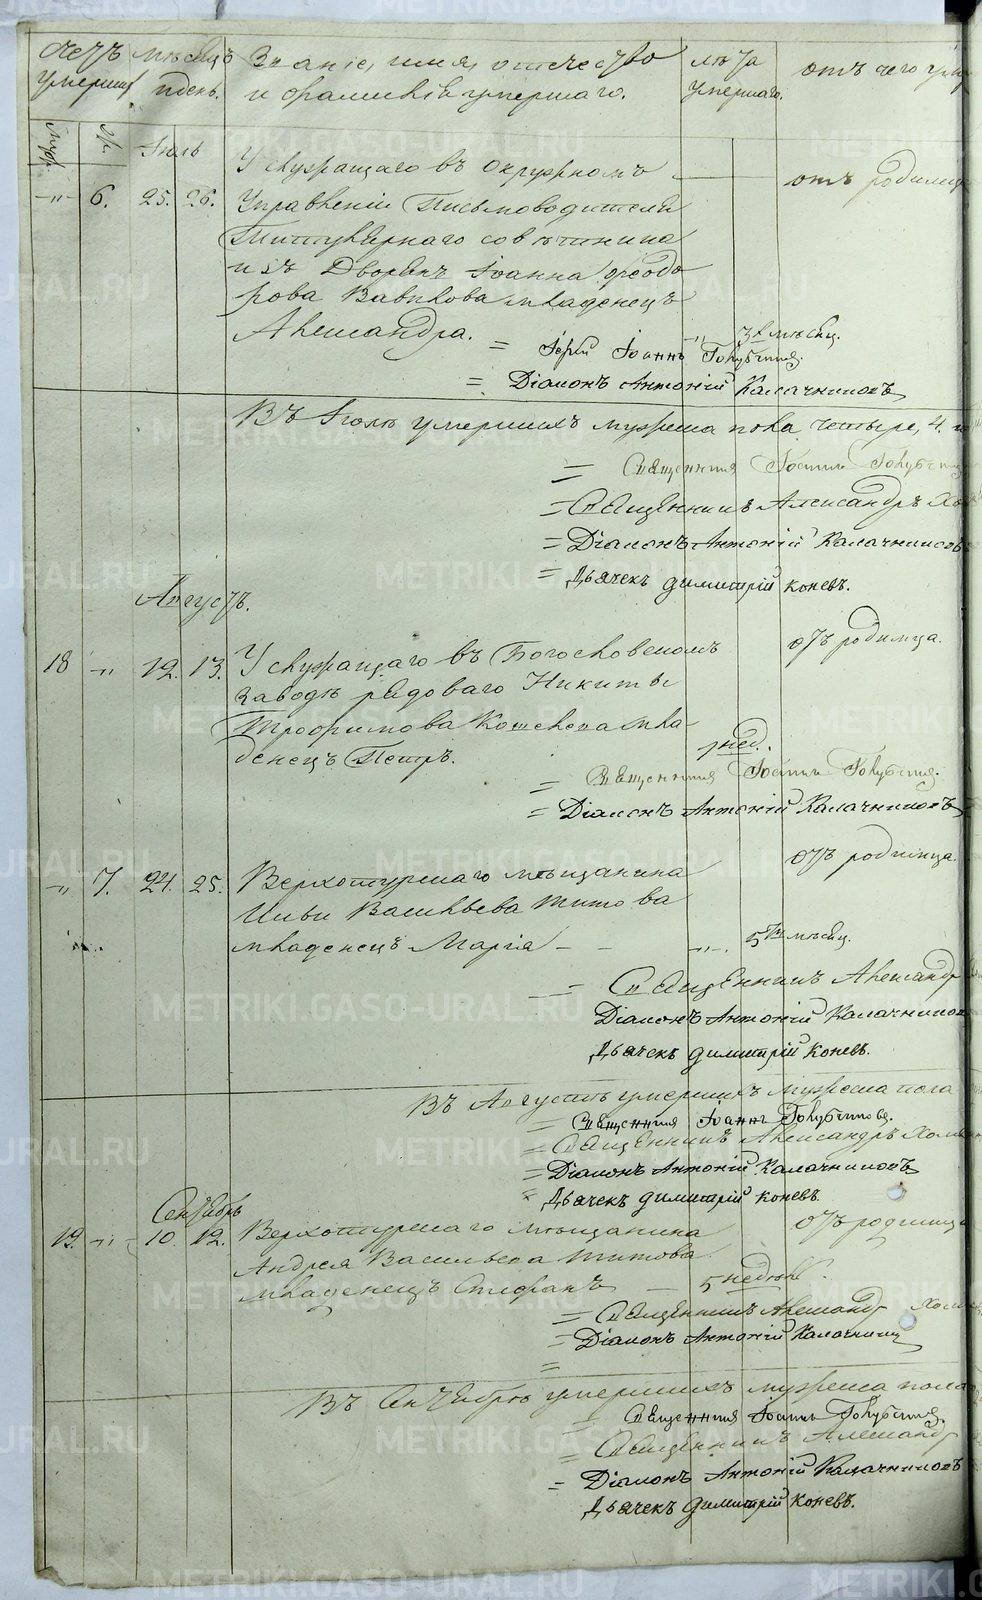 Счетъ мѣсяцъ Званіе, имя, отечество лѣта отъ чего
умерш и день. и фамилія умершаго. умершаго.
муж. ж. Іюль
У служащаго въ окружномъ отъ родимца
„ 6. 25. 26. Управленіи Письмоводителя
Титулярнаго совѣтника
изъ Дворянъ Іоанна Феодо
рова Вавилова младенецъ
Александра. „ 3х мѣсяц.
= Іерей Іоаннъ Голубчиков.
= Діаконъ Антоній Калачниковъ
Въ Іюлѣ умершихъ мужеска пола четыре, 4.
= Священникъ Іоаннъ Голубчик
= Священникъ Александръ
= Діаконъ Антоній Калачниковъ
= Дьячекъ Димитрій Коневъ.
Августъ.
отъ родимца.
18 „ 12. 13. У служащаго въ Богословскомъ
заводѣ рядоваго Никиты
Трофимова мла
денецъ Петръ. нед.
= Священникъ Іоаннъ Голубчиков.
= Діаконъ Антоній Калачниковъ
отъ родимца.
„ 7. 24. 25. Верхотурскаго мѣщанина
Ильи Васильева Титова
младенецъ Марія – – „ 5ти мѣсяц.
= Священникъ Александр
Діаконъ Антоній Калачников
Дьячекъ Димитрій Коневъ.
Въ Августѣ умершихъ мужеска пола
= Священникъ Іоаннъ Голубчиков.
= Священникъ Александръ
= Діаконъ Антоній Калачниковъ
= Дьячекъ Димитрій Коневъ
Сентябрь
19. „ 10. 12. Верхотурскаго мѣщанина отъ родимца
Андрея Васильева Титова
младенецъ Стефанъ – 5 недѣль.
= Священникъ Александр
= Діаконъ Антоній Калачник
=
Въ Сентябрѣ умершихъ мужеска пола
= Священникъ Іоаннъ Голубчиков.
= Священникъ Александ
= Діаконъ Антоній Калачниковъ
Дьячекъ Димитрій Коневъ.
METRIKI.GASO-URAL.RU